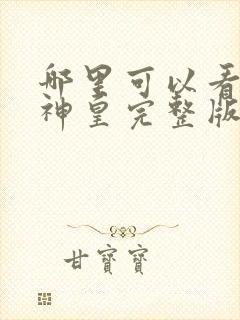 哪里可以看
神皇完整版
甘宝宝